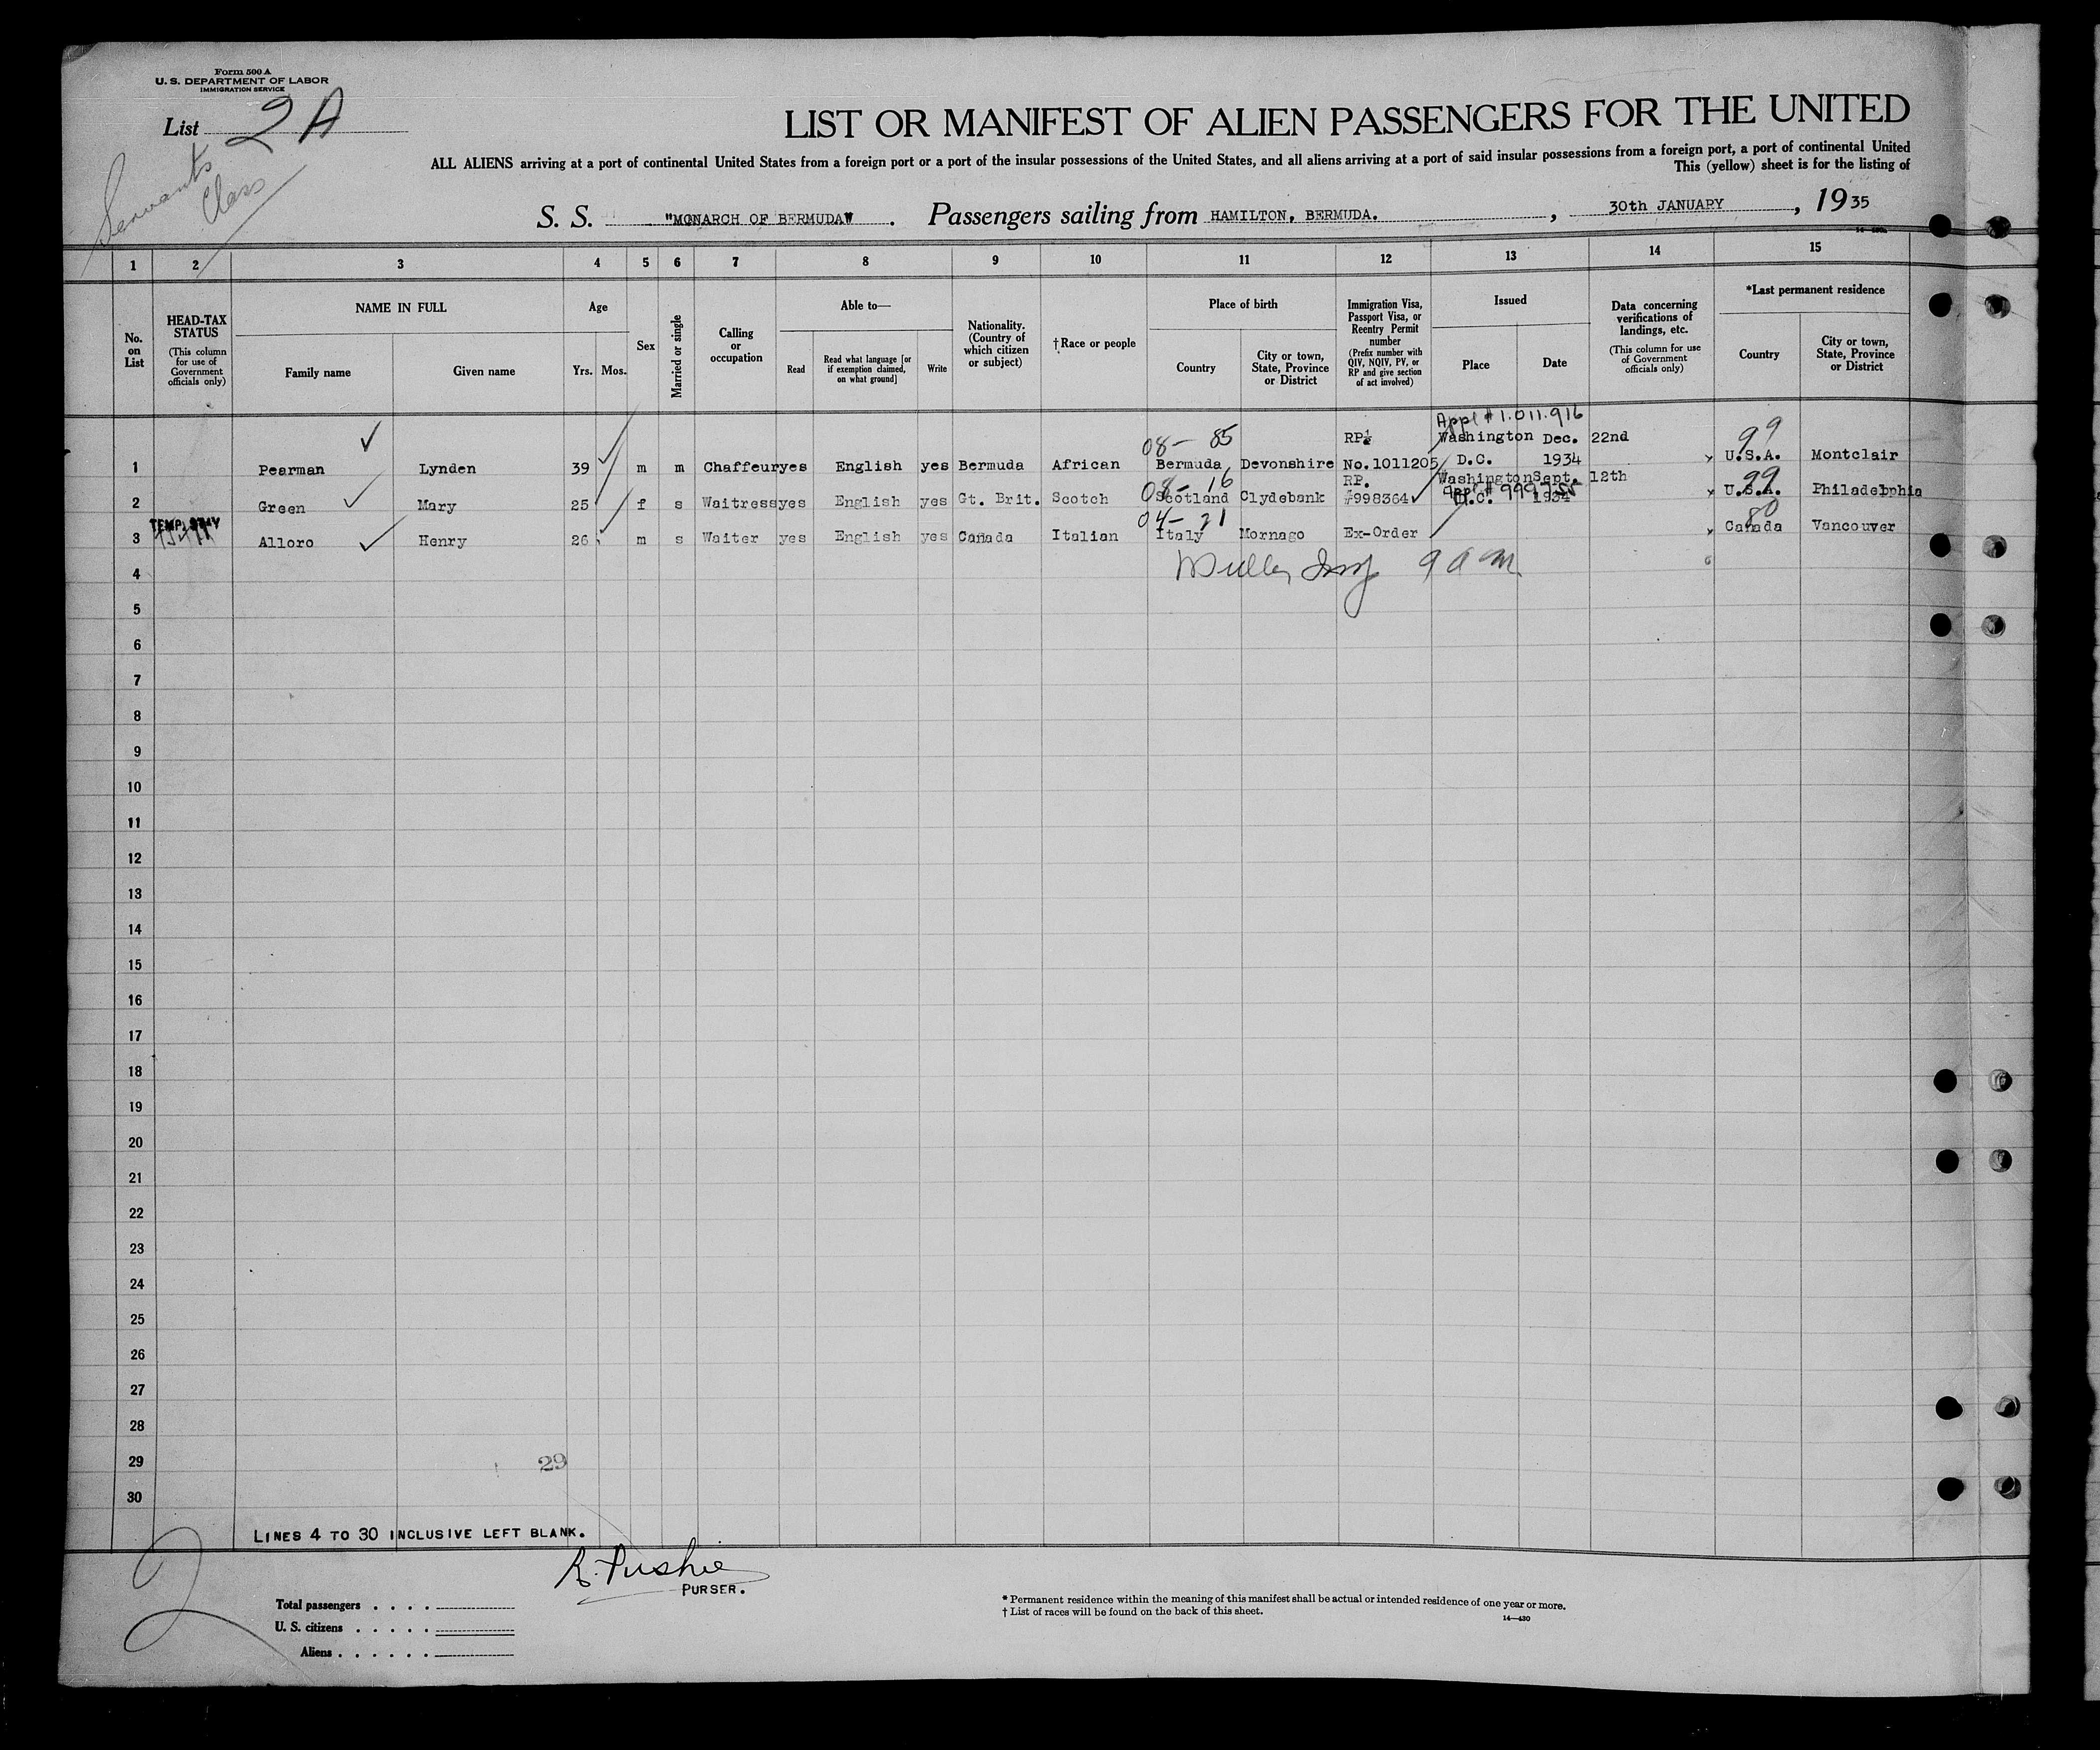 Form 500 A
U. S. DEPARTMENT OF LABOR
IMMIGRATION SERVICE
List 2 A
Servants
Class
LIST OR MANIFEST OF ALIEN PASSENGERS FOR THE UNITED
ALL ALIENS arriving at a port of continental United States from a foreign port or a port of the insular possessions of the United States, and all aliens arriving at a port of said insular possessions from a foreign port, a port of continental United
This (yellow) sheet is for the listing of
S. S. "MONARCH OF BERMUDA". Passengers sailing from HAMILTON, BERMUDA. , 30th JANUARY , 1935
1 2 3 4 5 6 7 8 9 10 11 12 13 14 15
No. on List
HEAD-TAX STATUS
(This column for use of Government officials only)
NAME IN FULL
Family name Given name
Age
Yrs. Mos.
Sex
Married or single
Calling or occupation
Able to—
Read
Read what language [or if exemption claimed, on what ground]
Write
Nationality. (Country of which citizen or subject)
†Race or people
Place of birth
Country
City or town, State, Province or District
Immigration Visa, Passport Visa, or Reentry Permit number
(Prefix number with QIV, NQIV, PV, or RP and give section of act involved)
Issued
Place Date
Data concerning verifications of landings, etc.
(This column for use of Government officials only)
*Last permanent residence
Country
City or town, State, Province or District
Appl # 1.011.916
08- 85 RP Washington Dec. 22nd 99
1 Pearman Lynden 39 m m Chaffeur yes English yes Bermuda African Bermuda Devonshire No.1011205 D.C. 1934 U.S.A. Montclair
08- 16 RP. Washington Sept. 12th 99
2 Green Mary 25 f s Waitress yes English yes Gt. Brit. Scotch Scotland Clydebank #998364 D.C. 1934 U.S.A. Philadelphia
Appl #
TEMP. STAY 04- 21 80
3 Alloro Henry 26 m s Waiter yes English yes Canada Italian Italy Mornago Ex-Order Canada Vancouver
4
5
6
7
8
9
10
11
12
13
14
15
16
17
18
19
20
21
22
23
24
25
26
27
28
29
30
29
LINES 4 TO 30 INCLUSIVE LEFT BLANK.
R. Pushie
PURSER.
Total passengers . . . .
U. S. citizens . . . . .
Aliens . . . . . .
* Permanent residence within the meaning of this manifest shall be actual or intended residence of one year or more.
† List of races will be found on the back of this sheet.
14—430